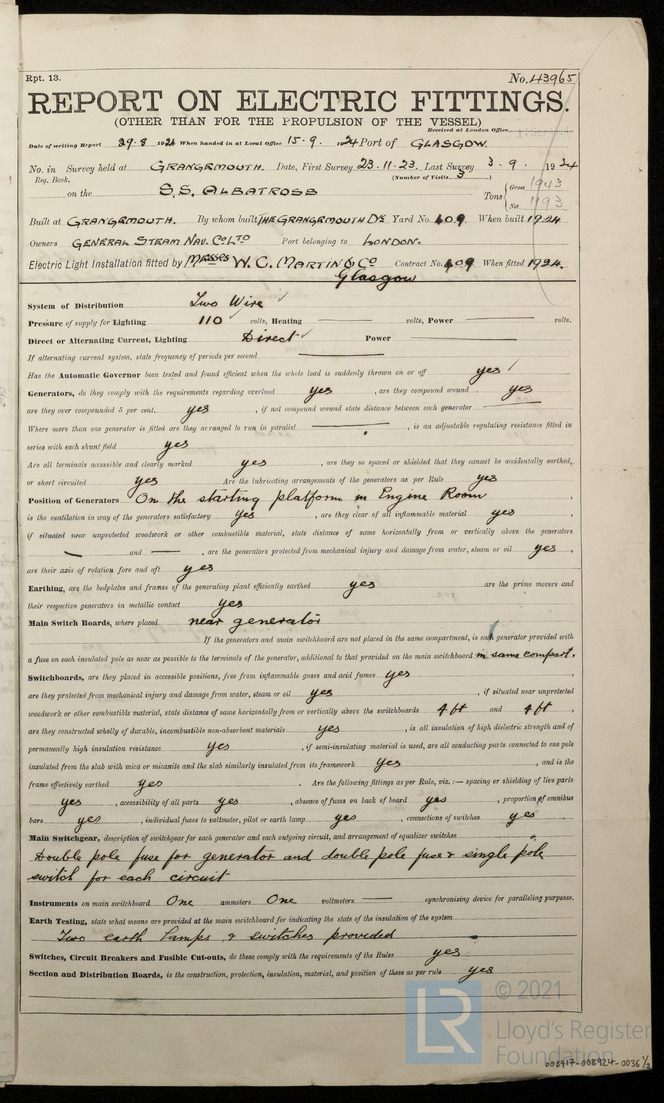 Rpt. 13.
No. 43965
REPORT ON ELECTRIC FITTINGS.
(OTHER THAN FOR THE PROPULSION OF THE VESSEL)
Received at London Office
Date of writing Report 29.8 1924 When handed in at Local Office 15.9. 1924 Port of GLASGOW.
No. in Survey held at GRANGEMOUTH. Date, First Survey 23.11.23. Last Survey 3.9. 1924
Reg. Book. (Number of Visits 5 )
on the S.S. ALBATROSS Tons { Gross 1943
Net 1193
Built at GRANGEMOUTH. By whom built THE GRANGEMOUTH Dᵏʸ Yard No. 409. When built 1924
Owners GENERAL STEAM NAV. Co Lᵀᴰ Port belonging to LONDON.
Electric Light Installation fitted by Messrs W. C. MARTIN & Co Contract No. 409 When fitted 1924.
Glasgow
System of Distribution Two Wire
Pressure of supply for Lighting 110 volts, Heating — volts, Power — volts.
Direct or Alternating Current, Lighting Direct Power —
If alternating current system, state frequency of periods per second —
Has the Automatic Governor been tested and found efficient when the whole load is suddenly thrown on or off yes
Generators, do they comply with the requirements regarding overload yes , are they compound wound yes
are they over compounded 5 per cent. yes , if not compound wound state distance between each generator —
Where more than one generator is fitted are they arranged to run in parallel — , is an adjustable regulating resistance fitted in
series with each shunt field yes
Are all terminals accessible and clearly marked yes , are they so spaced or shielded that they cannot be accidentally earthed,
or short circuited yes Are the lubricating arrangements of the generators as per Rule yes
Position of Generators On the starting platform in Engine Room ,
is the ventilation in way of the generators satisfactory yes , are they clear of all inflammable material yes ,
if situated near unprotected woodwork or other combustible material, state distance of same horizontally from or vertically above the generators
— and — , are the generators protected from mechanical injury and damage from water, steam or oil yes ,
are their axis of rotation fore and aft yes
Earthing, are the bedplates and frames of the generating plant efficiently earthed yes are the prime movers and
their respective generators in metallic contact yes
Main Switch Boards, where placed near generator
If the generators and main switchboard are not placed in the same compartment, is each generator provided with
a fuse on each insulated pole as near as possible to the terminals of the generator, additional to that provided on the main switchboard in same compart.
Switchboards, are they placed in accessible positions, free from inflammable gases and acid fumes yes ,
are they protected from mechanical injury and damage from water, steam or oil yes , if situated near unprotected
woodwork or other combustible material, state distance of same horizontally from or vertically above the switchboards 4 ft and 4 ft ,
are they constructed wholly of durable, incombustible non-absorbent materials yes , is all insulation of high dielectric strength and of
permanently high insulation resistance yes , if semi-insulating material is used, are all conducting parts connected to one pole
insulated from the slab with mica or micanite and the slab similarly insulated from its framework yes , and is the
frame effectively earthed yes . Are the following fittings as per Rule, viz.:— spacing or shielding of live parts
yes , accessibility of all parts yes , absence of fuses on back of board yes , proportion of omnibus
bars yes , individual fuses to voltmeter, pilot or earth lamp yes , connections of switches yes
Main Switchgear, description of switchgear for each generator and each outgoing circuit, and arrangement of equalizer switches
Double pole fuse for generator and double pole fuse & single pole
switch for each circuit
Instruments on main switchboard One ammeters One voltmeters — synchronising device for paralleling purposes.
Earth Testing, state what means are provided at the main switchboard for indicating the state of the insulation of the system
Two earth lamps & switches provided
Switches, Circuit Breakers and Fusible Cut-outs, do these comply with the requirements of the Rules yes
Section and Distribution Boards, is the construction, protection, insulation, material, and position of these as per rule yes
LR
© 2021
Lloyd's Register
Foundation
008917-008924-0036 1/2